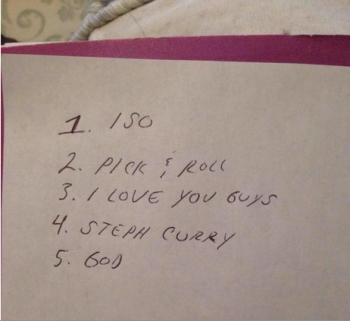 1. ISO
2. PICK & ROLL
3. I LOVE YOU GUYS
4. STEPH CURRY
5. GOD